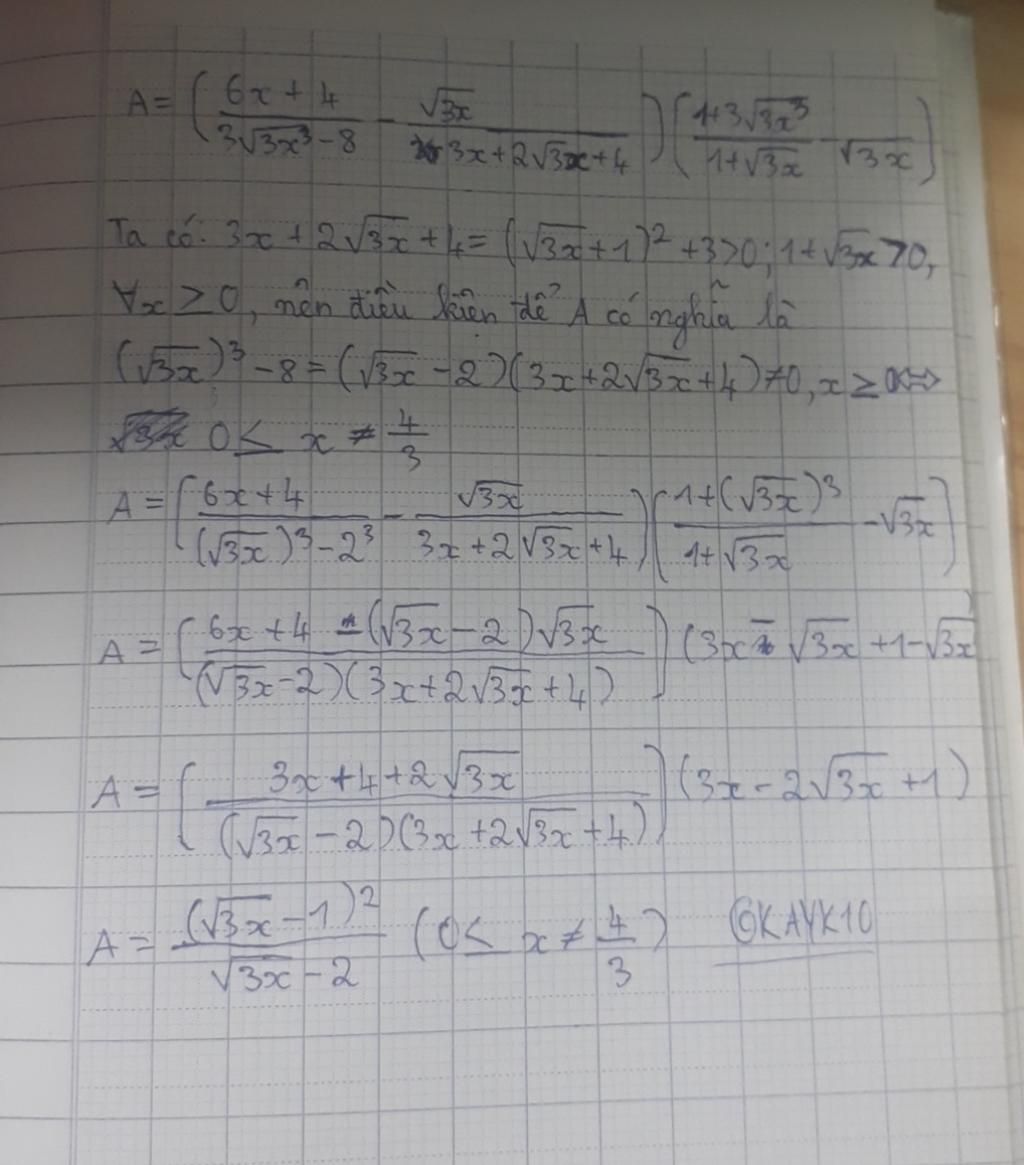 A = (\frac{6x + 4}{3\sqrt{3x^3} - 8} - \frac{\sqrt{3x}}{3x + 2\sqrt{3x} + 4})(\frac{1 + 3\sqrt{3x^3}}{1 + \sqrt{3x}} - \sqrt{3x})
Ta có: 3x + 2\sqrt{3x} + 4 = (\sqrt{3x} + 1)^2 + 3 > 0; 1 + \sqrt{3x} > 0,
∀x ≥ 0, nên điều kiện để A có nghĩa là
(\sqrt{3x})^3 - 8 = (\sqrt{3x} - 2)(3x + 2\sqrt{3x} + 4) ≠ 0, x ≥ 0 ⇔
0 ≤ x ≠ \frac{4}{3}
A = (\frac{6x + 4}{(\sqrt{3x})^3 - 2^3} - \frac{\sqrt{3x}}{3x + 2\sqrt{3x} + 4})(\frac{1 + (\sqrt{3x})^3}{1 + \sqrt{3x}} - \sqrt{3x})
A = (\frac{6x + 4 - (\sqrt{3x} - 2)\sqrt{3x}}{(\sqrt{3x} - 2)(3x + 2\sqrt{3x} + 4)})(3x - \sqrt{3x} + 1 - \sqrt{3x})
A = (\frac{3x + 4 + 2\sqrt{3x}}{(\sqrt{3x} - 2)(3x + 2\sqrt{3x} + 4)})(3x - 2\sqrt{3x} + 1)
A = \frac{(\sqrt{3x} - 1)^2}{\sqrt{3x} - 2} (0 ≤ x ≠ \frac{4}{3}) OKAYK10